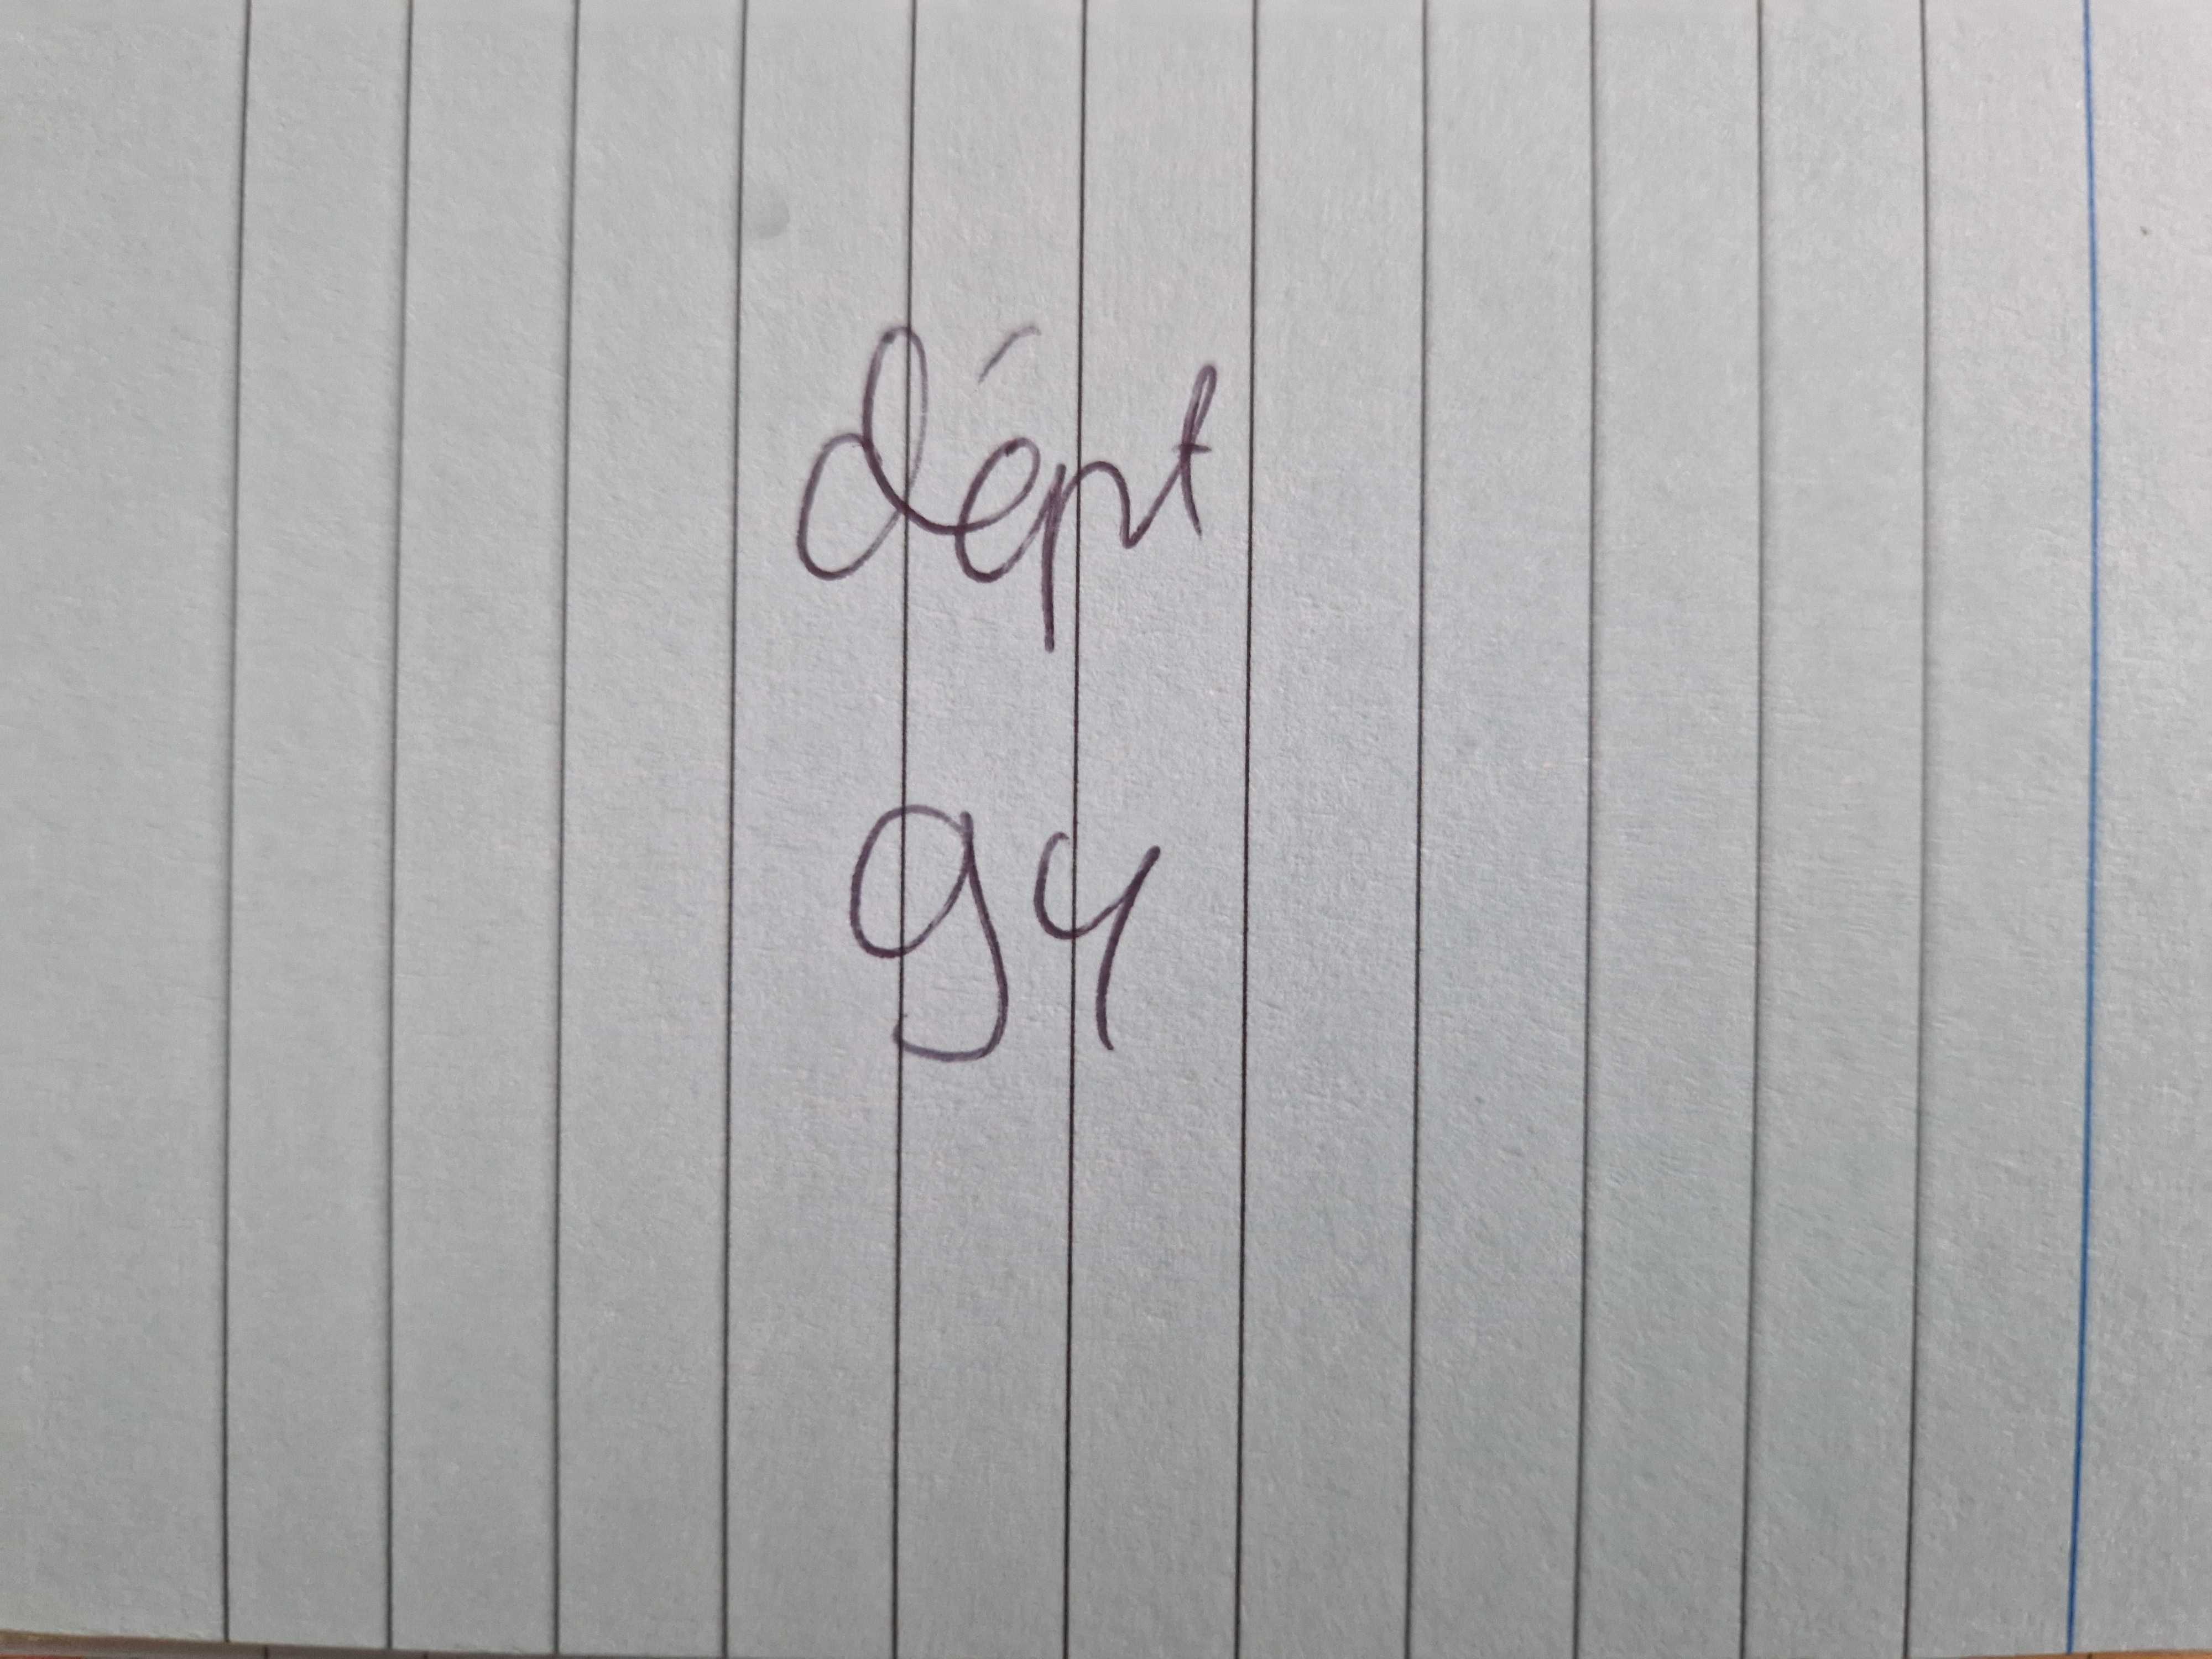 dépt
94